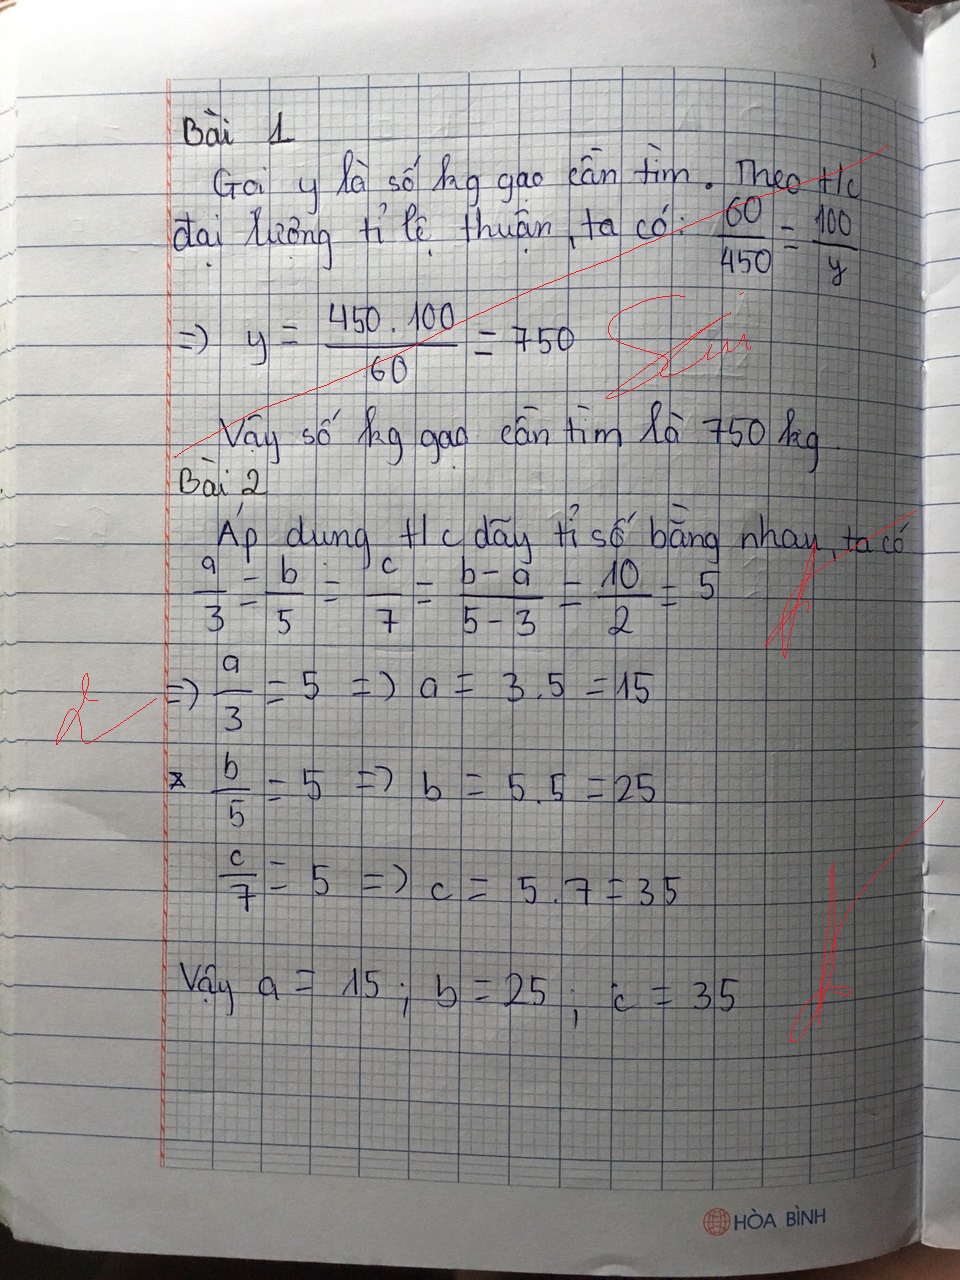 Bài 1
Gọi y là số kg gạo cần tìm. Theo t/c
đại lượng tỉ lệ thuận, ta có: 60/450 = 100/y
=> y = 450.100/60 = 750
Sai
Vậy số kg gạo cần tìm là 750 kg
Bài 2
Áp dụng t/c dãy tỉ số bằng nhay, ta có
a/3 = b/5 = c/7 = b-a/5-3 = 10/2 = 5
=> a/3 = 5 => a = 3.5 = 15
b/5 = 5 => b = 5.5 = 25
c/7 = 5 => c = 5.7 = 35
Vậy a = 15; b = 25; c = 35
HÒA BÌNH